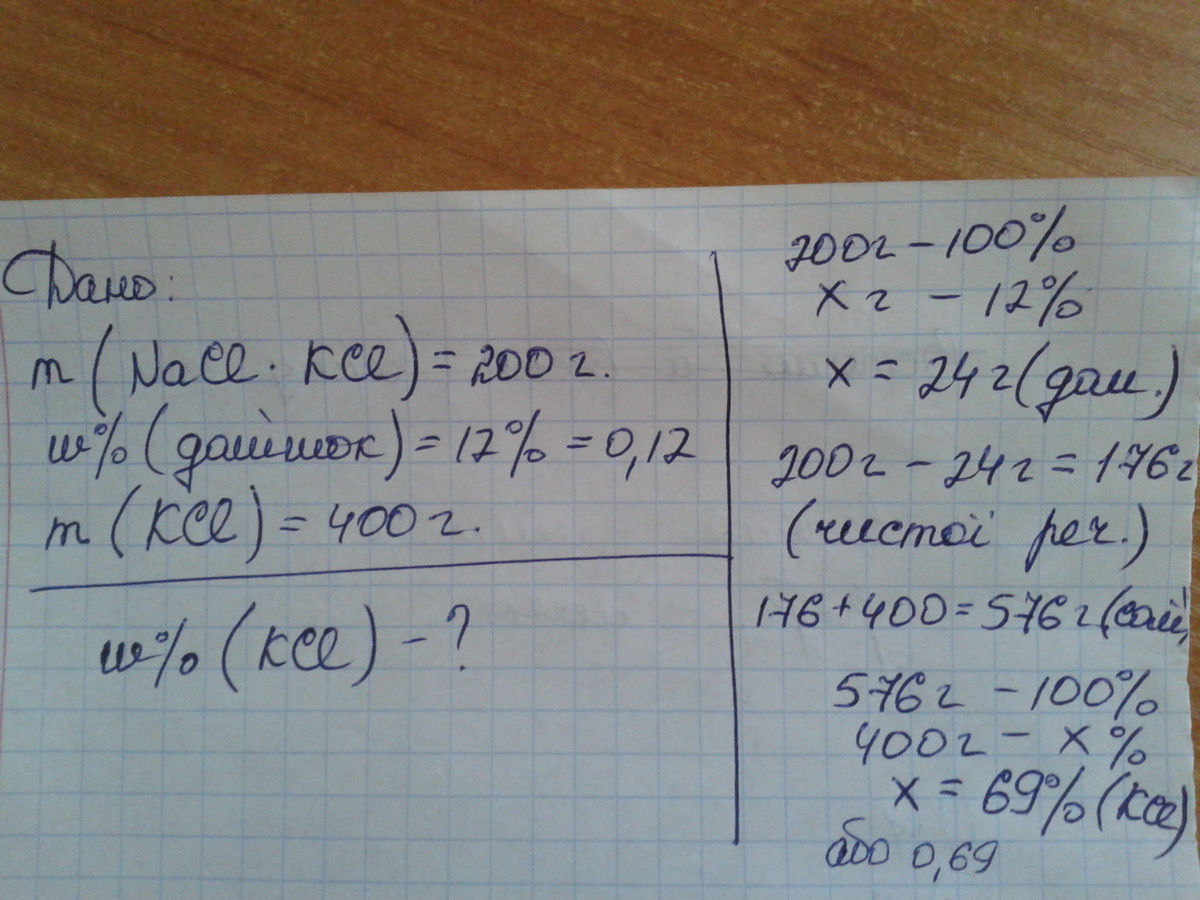 Дано:
m (NaCl · KCl) = 200 г.
w% (домішок) = 12% = 0,12
m (KCl) = 400 г.
w% (KCl) - ?
200г - 100%
x г - 12%
x = 24 г (дом.)
200г - 24г = 176г
(чистої реч.)
176 + 400 = 576 г (сум
576г - 100%
400г - x %
x = 69% (KCl)
або 0,69